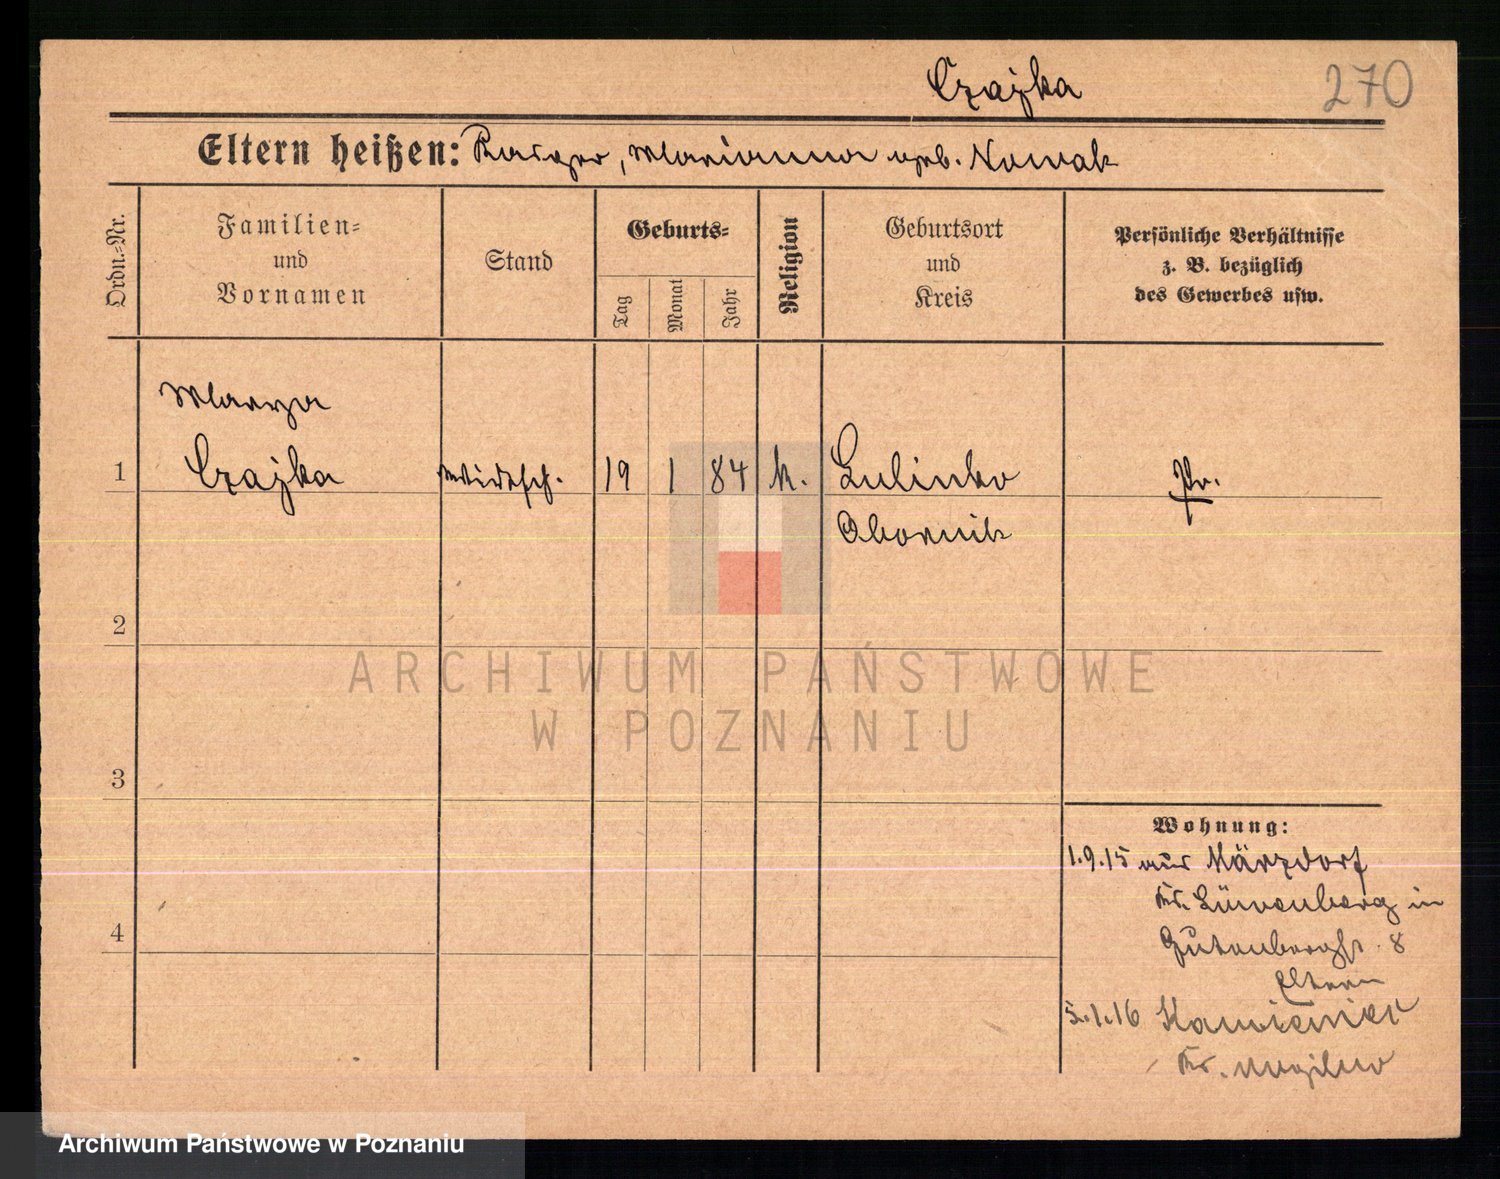 Czajka
270
Eltern heißen: Kasper, Marianna geb. Nowak
Ordn.-Nr.
Familien-
und
Vornamen
Stand
Geburts-
Tag
Monat
Jahr
Religion
Geburtsort
und
Kreis
Persönliche Verhältnisse
z. B. bezüglich
des Gewerbes usw.
Marya
1 Czajka Wirtsch. 19 1 84 k. Lulinko Pr.
Obornik
2
ARCHIWUM PAŃSTWOWE
W POZNANIU
3
Wohnung:
1.9.15 aus Märzdorf
Kr. Löwenberg in
4
Gutenbergstr. 8
Eltern
5.1.16 Kamieniec
Kr. Mogilno
Archiwum Państwowe w Poznaniu